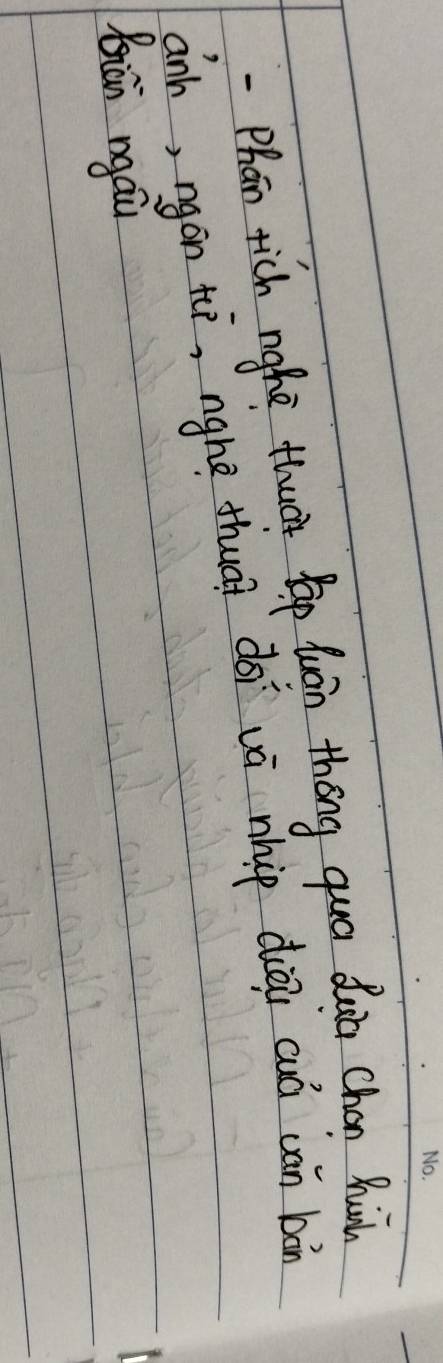 No.
- Phân tích nghệ thuật lập luận thông qua lựa chọn hình
ảnh, ngôn từ, nghệ thuật đối và nhịp điệu của văn bản
biền ngẫu